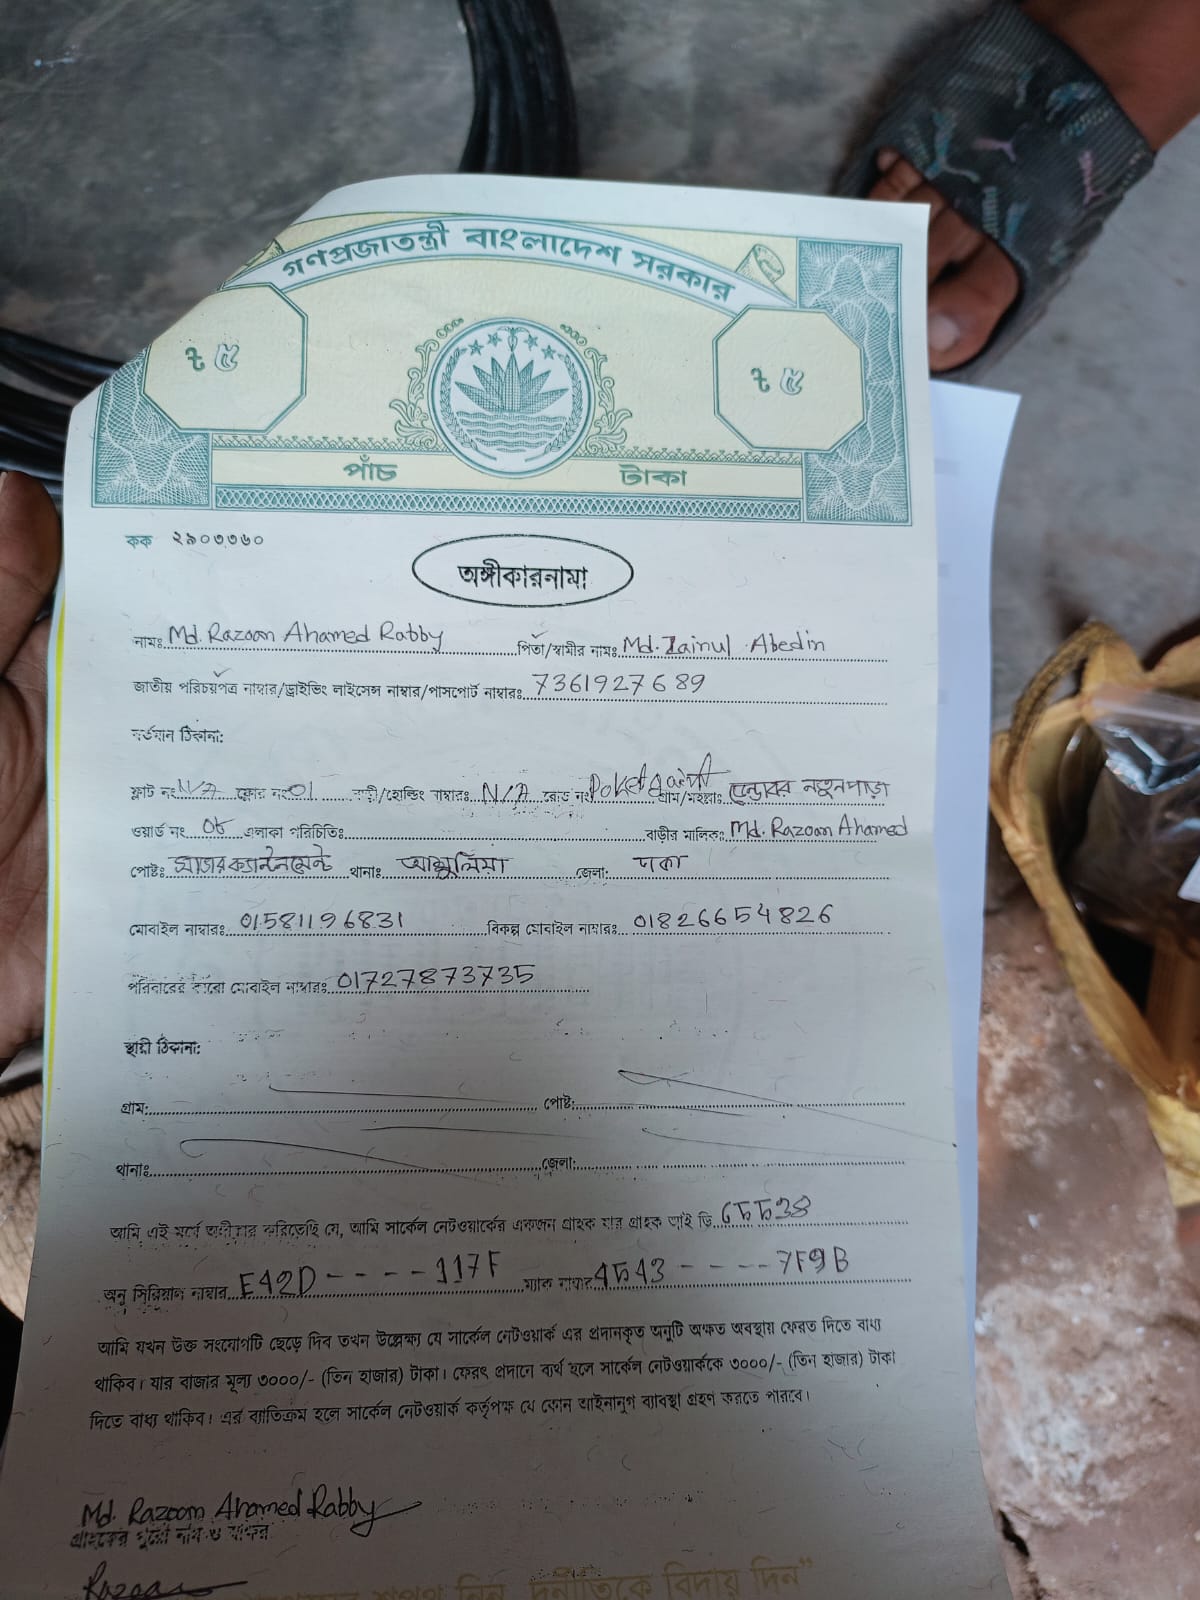 গণপ্রজাতন্ত্রী বাংলাদেশ সরকার
৳ ৫ ৳ ৫
পাঁচ টাকা
কক ২৯০৩৩৬০
অঙ্গীকারনামা
নামঃ Md. Razoan Ahamed Rabby পিতা/স্বামীর নামঃ Md. Zainul Abedin
জাতীয় পরিচয়পত্র নাম্বার/ড্রাইভিং লাইসেন্স নাম্বার/পাসপোর্ট নাম্বারঃ 7361927689
বর্তমান ঠিকানা:
ফ্লাট নং N/A ফ্লোর নং 01 বাড়ী/হোল্ডিং নাম্বারঃ N/A রোড নং গ্রাম/মহল্লাঃ নতুনপাড়া
ওয়ার্ড নং 05 এলাকা পরিচিতিঃ বাড়ীর মালিকঃ Md. Razoan Ahamed
পোষ্টঃ সাভার ক্যান্টনমেন্ট থানাঃ আশুলিয়া জেলা: ঢাকা
মোবাইল নাম্বারঃ 01581196831 বিকল্প মোবাইল নাম্বারঃ 01826654826
পরিবারের কারো মোবাইল নাম্বারঃ 01727873735
স্থায়ী ঠিকানা:
গ্রাম: পোষ্ট:
থানাঃ জেলা:
আমি এই মর্মে অঙ্গীকার করিতেছি যে, আমি সার্কেল নেটওয়ার্কের একজন গ্রাহক যার গ্রাহক আই ডি 65538
অনু সিরিয়াল নাম্বার E42D - - - - 117F ম্যাক নাম্বার 4543 - - - - 7F9B
আমি যখন উক্ত সংযোগটি ছেড়ে দিব তখন উল্লেক্ষ্য যে সার্কেল নেটওয়ার্ক এর প্রদানকৃত অনুটি অক্ষত অবস্থায় ফেরত দিতে বাধ্য
থাকিব। যার বাজার মূল্য ৩০০০/- (তিন হাজার) টাকা। ফেরৎ প্রদানে ব্যর্থ হলে সার্কেল নেটওয়ার্ককে ৩০০০/- (তিন হাজার) টাকা
দিতে বাধ্য থাকিব। এর ব্যাতিক্রম হলে সার্কেল নেটওয়ার্ক কর্তৃপক্ষ যে কোন আইনানুগ ব্যাবস্থা গ্রহণ করতে পারবে।
Md. Razoan Ahamed Rabby
গ্রাহকের পুরো নাম ও স্বাক্ষর
Razoan
শপথ নিন, দুর্নীতিকে বিদায় দিন"